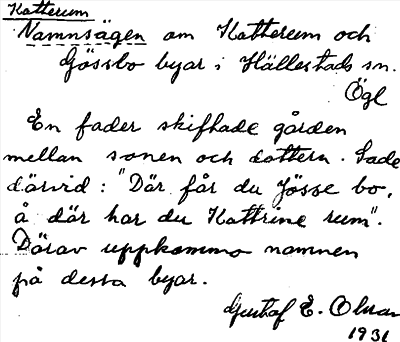 Katterum
Namnsägen om Katterum och
Gössbo byar i Hällestads sn.
Ögl
En fader skiftade gården
mellan sonen och dottern. Sade
därvid: "Där får du Jösse bo,
å där har du Kattrine rum".
Därav uppkommo namnen
på dessa byar.
Gustaf E. Olsson
1931